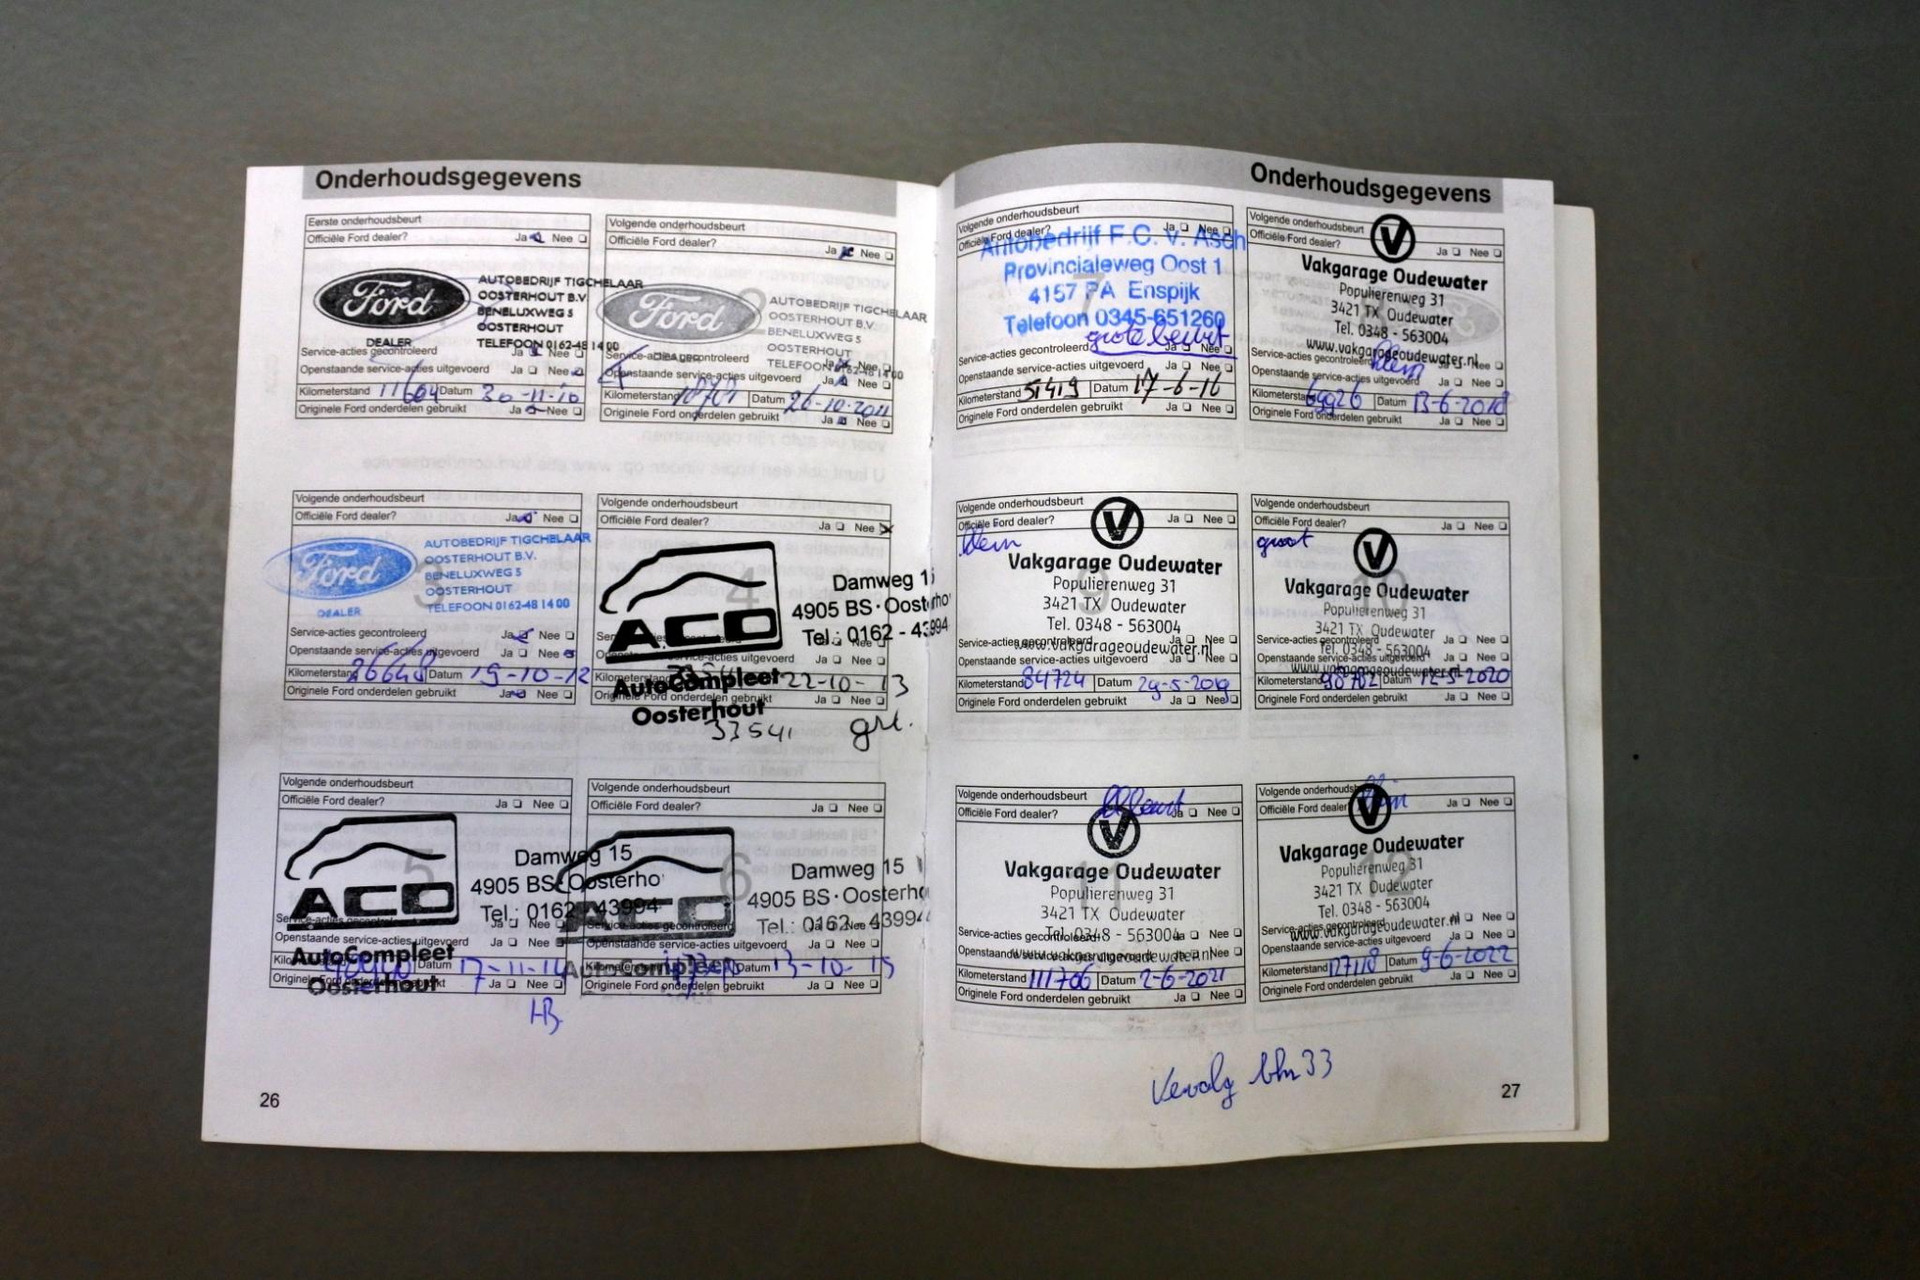 Onderhoudsgegevens
Eerste onderhoudsbeurt
Officiële Ford dealer? Ja Nee
Ford
DEALER
AUTOBEDRIJF TIGCHELAAR
OOSTERHOUT B.V.
BENELUXWEG 5
OOSTERHOUT
TELEFOON 0162-48 14 00
Service-acties gecontroleerd Ja Nee
Openstaande service-acties uitgevoerd Ja Nee
Kilometerstand 11604 Datum 30-11-10
Originele Ford onderdelen gebruikt Ja Nee
Volgende onderhoudsbeurt
Officiële Ford dealer? Ja Nee
2
Ford
DEALER
AUTOBEDRIJF TIGCHELAAR
OOSTERHOUT B.V.
BENELUXWEG 5
OOSTERHOUT
TELEFOON 0162-48 14 00
Service-acties gecontroleerd Ja Nee
Openstaande service-acties uitgevoerd Ja Nee
Kilometerstand Datum 26-10-2011
Originele Ford onderdelen gebruikt Ja Nee
Volgende onderhoudsbeurt
Officiële Ford dealer? Ja Nee
3
Ford
DEALER
AUTOBEDRIJF TIGCHELAAR
OOSTERHOUT B.V.
BENELUXWEG 5
OOSTERHOUT
TELEFOON 0162-48 14 00
Service-acties gecontroleerd Ja Nee
Openstaande service-acties uitgevoerd Ja Nee
Kilometerstand 26648 Datum 19-10-12
Originele Ford onderdelen gebruikt Ja Nee
Volgende onderhoudsbeurt
Officiële Ford dealer? Ja Nee
4
ACO
Damweg 15
4905 BS · Oosterho
Tel.: 0162 - 43994
service-acties uitgevoerd Ja Nee
Kilometerstand 22-10-13
Ford onderdelen gebruikt Ja Nee
AutoCompleet
Oosterhout
33541
Volgende onderhoudsbeurt
Officiële Ford dealer? Ja Nee
5
ACO
Damweg 15
4905 BS · Oosterho
Tel.: 0162 - 43994
Service-acties gecontroleerd Ja Nee
Openstaande service-acties uitgevoerd Ja Nee
AutoCompleet
Oosterhout
Datum 17-11-14
Ja Nee
Volgende onderhoudsbeurt
Officiële Ford dealer? Ja Nee
6
ACO
Damweg 15
4905 BS · Oosterho
Tel.: 0162 - 43994
Service-acties gecontroleerd Ja Nee
Openstaande service-acties uitgevoerd Ja Nee
AutoCompleet
Kilometerstand Datum 13-10-15
Originele Ford onderdelen gebruikt Ja Nee
26
Onderhoudsgegevens
Volgende onderhoudsbeurt
Officiële Ford dealer? Ja Nee
7
Autobedrijf F.C. v. Asch
Provincialeweg Oost 1
4157 PA Enspijk
Telefoon 0345-651260
grote beurt
Service-acties gecontroleerd Ja Nee
Openstaande service-acties uitgevoerd Ja Nee
Kilometerstand 51419 Datum 17-6-16
Originele Ford onderdelen gebruikt Ja Nee
Volgende onderhoudsbeurt
Officiële Ford dealer? Ja Nee
Vakgarage Oudewater
Populierenweg 31
3421 TX Oudewater
Tel. 0348 - 563004
www.vakgarageoudewater.nl
klein
Service-acties gecontroleerd Nee
Openstaande service-acties uitgevoerd Ja Nee
Kilometerstand 69926 Datum 13-6-2018
Originele Ford onderdelen gebruikt Ja Nee
Volgende onderhoudsbeurt
Officiële Ford dealer? Ja Nee
klein
9
Vakgarage Oudewater
Populierenweg 31
3421 TX Oudewater
Tel. 0348 - 563004
www.vakgarageoudewater.nl
Service-acties gecontroleerd Ja Nee
Openstaande service-acties uitgevoerd Ja Nee
Kilometerstand 84724 Datum 29-5-2019
Originele Ford onderdelen gebruikt Ja Nee
Volgende onderhoudsbeurt
Officiële Ford dealer? Ja Nee
groot
10
Vakgarage Oudewater
Populierenweg 31
3421 TX Oudewater
Tel. 0348 - 563004
www.vakgarageoudewater.nl
Service-acties gecontroleerd Ja Nee
Openstaande service-acties uitgevoerd Ja Nee
Kilometerstand 98702 Datum 12-5-2020
Originele Ford onderdelen gebruikt Ja Nee
Volgende onderhoudsbeurt
Officiële Ford dealer? Ja Nee
11
Vakgarage Oudewater
Populierenweg 31
3421 TX Oudewater
Tel. 0348 - 563004
www.vakgarageoudewater.nl
Service-acties gecontroleerd Ja Nee
Openstaande Nee
Kilometerstand 111706 Datum 2-6-2021
Originele Ford onderdelen gebruikt Ja Nee
Volgende onderhoudsbeurt
Officiële Ford dealer Ja Nee
klein
12
Vakgarage Oudewater
Populierenweg 31
3421 TX Oudewater
Tel. 0348 - 563004
www.vakgarageoudewater.nl
Service-acties gecontroleerd Ja Nee
Openstaande service-acties uitgevoerd Ja Nee
Kilometerstand 127118 Datum 9-6-2022
Originele Ford onderdelen gebruikt Ja Nee
33
27